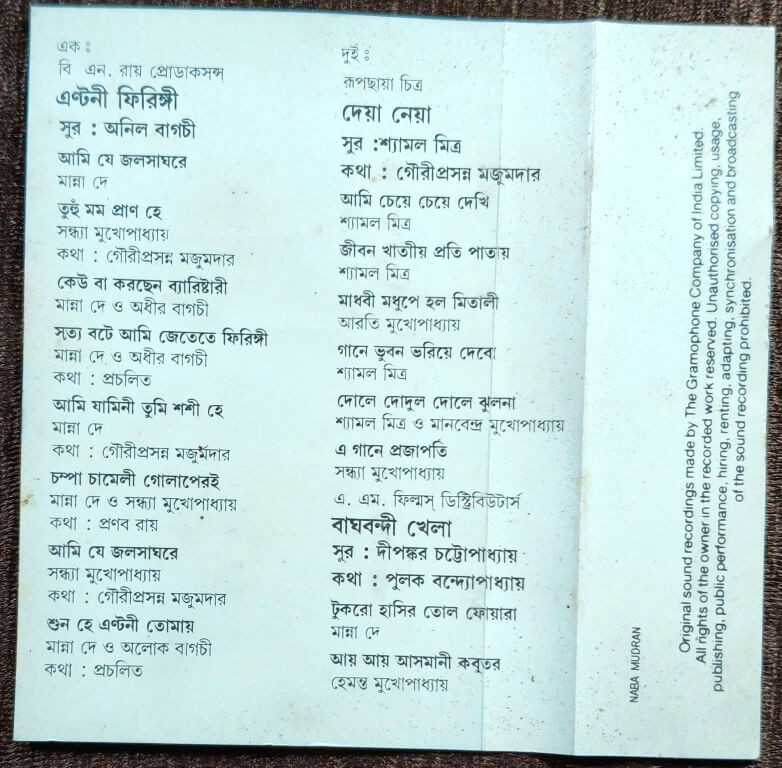 এক ঃ
বি এন. রায় প্রোডাকসন্স
এণ্টনী ফিরিঙ্গী
সুর : অনিল বাগচী
আমি যে জলসাঘরে
মান্না দে
তুহুঁ মম প্রাণ হে
সন্ধ্যা মুখোপাধ্যায়
কথা : গৌরীপ্রসন্ন মজুমদার
কেউ বা করছেন ব্যারিষ্টারী
মান্না দে ও অধীর বাগচী
সত্য বটে আমি জেতেতে ফিরিঙ্গী
মান্না দে ও অধীর বাগচী
কথা : প্রচলিত
আমি যামিনী তুমি শশী হে
মান্না দে
কথা : গৌরীপ্রসন্ন মজুমদার
চম্পা চামেলী গোলাপেরই
মান্না দে ও সন্ধ্যা মুখোপাধ্যায়
কথা : প্রণব রায়
আমি যে জলসাঘরে
সন্ধ্যা মুখোপাধ্যায়
কথা : গৌরীপ্রসন্ন মজুমদার
শুন হে এণ্টনী তোমায়
মান্না দে ও অলোক বাগচী
কথা : প্রচলিত
দুই ঃ
রূপছায়া চিত্র
দেয়া নেয়া
সুর :শ্যামল মিত্র
কথা : গৌরীপ্রসন্ন মজুমদার
আমি চেয়ে চেয়ে দেখি
শ্যামল মিত্র
জীবন খাতাীয় প্রতি পাতায়
শ্যামল মিত্র
মাধবী মধুপে হল মিতালী
আরতি মুখোপাধ্যায়
গানে ভুবন ভরিয়ে দেবো
শ্যামল মিত্র
দোলে দোদুল দোলে ঝুলনা
শ্যামল মিত্র ও মানবেন্দ্র মুখোপাধ্যায়
এ গানে প্রজাপতি
সন্ধ্যা মুখোপাধ্যায়
এ. এম. ফিল্মস্ ডিস্ট্রিবিউটার্স
বাঘবন্দী খেলা
সুর : দীপঙ্কর চট্টোপাধ্যায়
কথা : পুলক বন্দ্যোপাধ্যায়
টুকরো হাসির তোল ফোয়ারা
মান্না দে
আয় আয় আসমানী কবুতর
হেমন্ত মুখোপাধ্যায়
NABA MUDRAN
Original sound recordings made by The Gramophone Company of India Limited.
All rights of the owner in the recorded work reserved. Unauthorised copying, usage,
publishing, public performance, hiring, renting, adapting, synchronisation and broadcasting
of the sound recording prohibited.